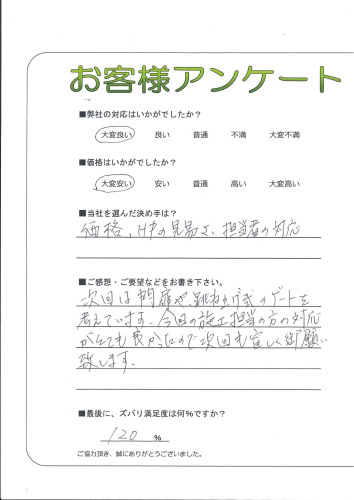 お客様アンケート
■弊社の対応はいかがでしたか？
大変良い 良い 普通 不満 大変不満
■価格はいかがでしたか？
大変安い 安い 普通 高い 大変高い
■当社を選んだ決め手は？
価格、HPの見易さ、担当者の対応
■ご感想・ご要望などをお書き下さい。
次回は門扉や、跳ね上げ式のゲートを
考えています。今回の施工担当の方の対応
がとても良かったので次回も宜しく御願い
致します。
■最後に、ズバリ満足度は何％ですか？
120 ％
ご協力頂き、誠にありがとうございました。